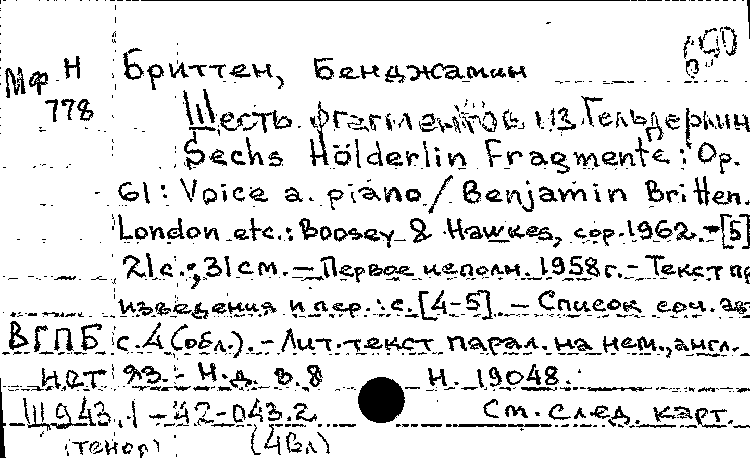 690
Мф Н Бриттен, Бенджамин
778 Шесть фрагментов из Гельдерлин
Sechs Hölderlin Fragmente: Op.
61: Voice a. piano / Benjamin Britten.
London etc.: Boosey & Hawkes, cop. 1962. - [5]
21с.; 31см. — Первое исполн. 1958г. - Текст пр
изведения и пер.: с. [4-5]. — Список соч. ав
ВГПБ с.4 (обл.). - Лит. текст парал. на нем., англ.
нот яз. - Н.д. B.8 Н. 19048.
Ш943.1-42-043.2 См. след. карт.
(тенор) (4вл)